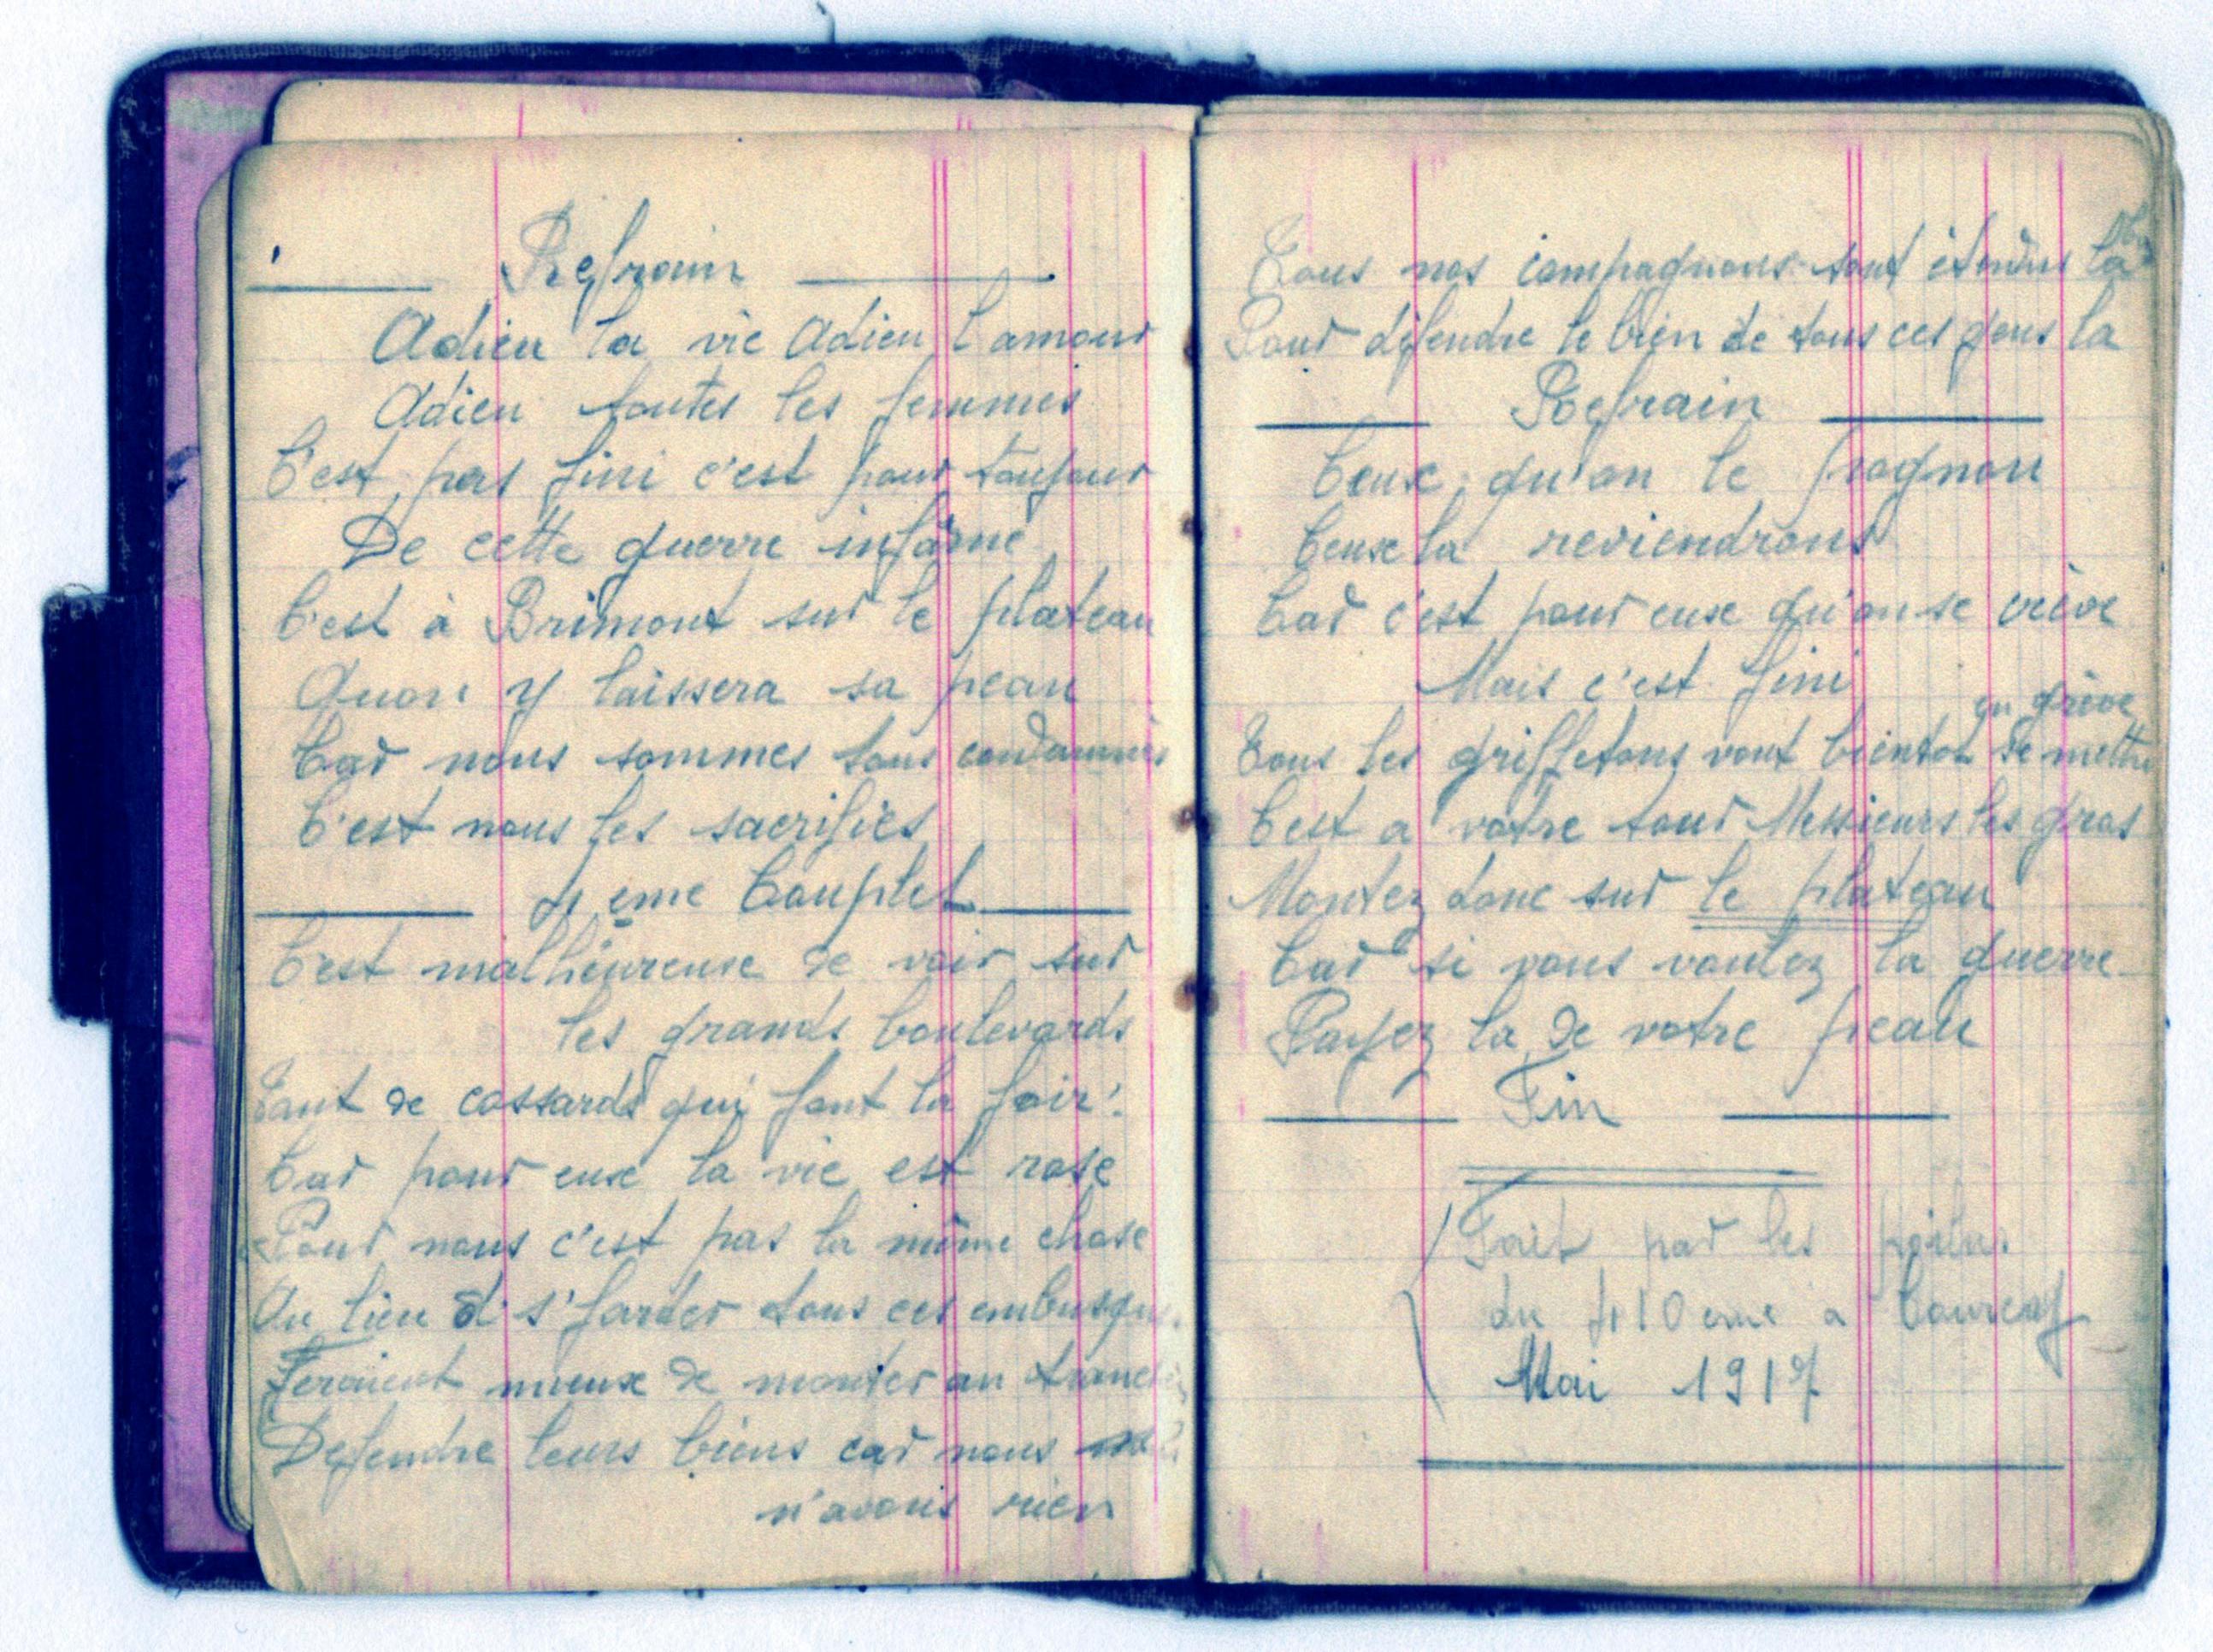 Refrain
Adieu la vie Adieu l'amour
Adieu toutes les femmes
C'est pas fini c'est pour toujour
De cette guerre infâme
C'est à Brimont sur le plateau
Quon y laissera sa peau
Car nous sommes tous condamnés
C'est nous les sacrifiés
4 eme Couplet
C'est malheureuse de voir sur
les grands boulevards
Tant de cossards qui font la foir
Car pour euse la vie est rose
Pour nous c'est pas la même chose
Au lieu d' s'farder tous ces
Feraient mieuse de monter au
Defendre leurs biens car nous
n'avons rien
Tous nos compagnons sont étendus la
Pour défendre le bien de tous ces gens la
Refrain
Ceuse qu'on le pognon
Ceuse la reviendrons
Car c'est pour euse qu'on se crève
Mais c'est fini
en grève
Tous les grifletons vont bientot se mettre
C'est a votre tour Messieurs les gros
Montez donc sur le plateau
Car si vous voulez la guerre
Payez la de votre peau
Fin
Fait par les poilus
du 410 eme a Courcy
Mai 1917